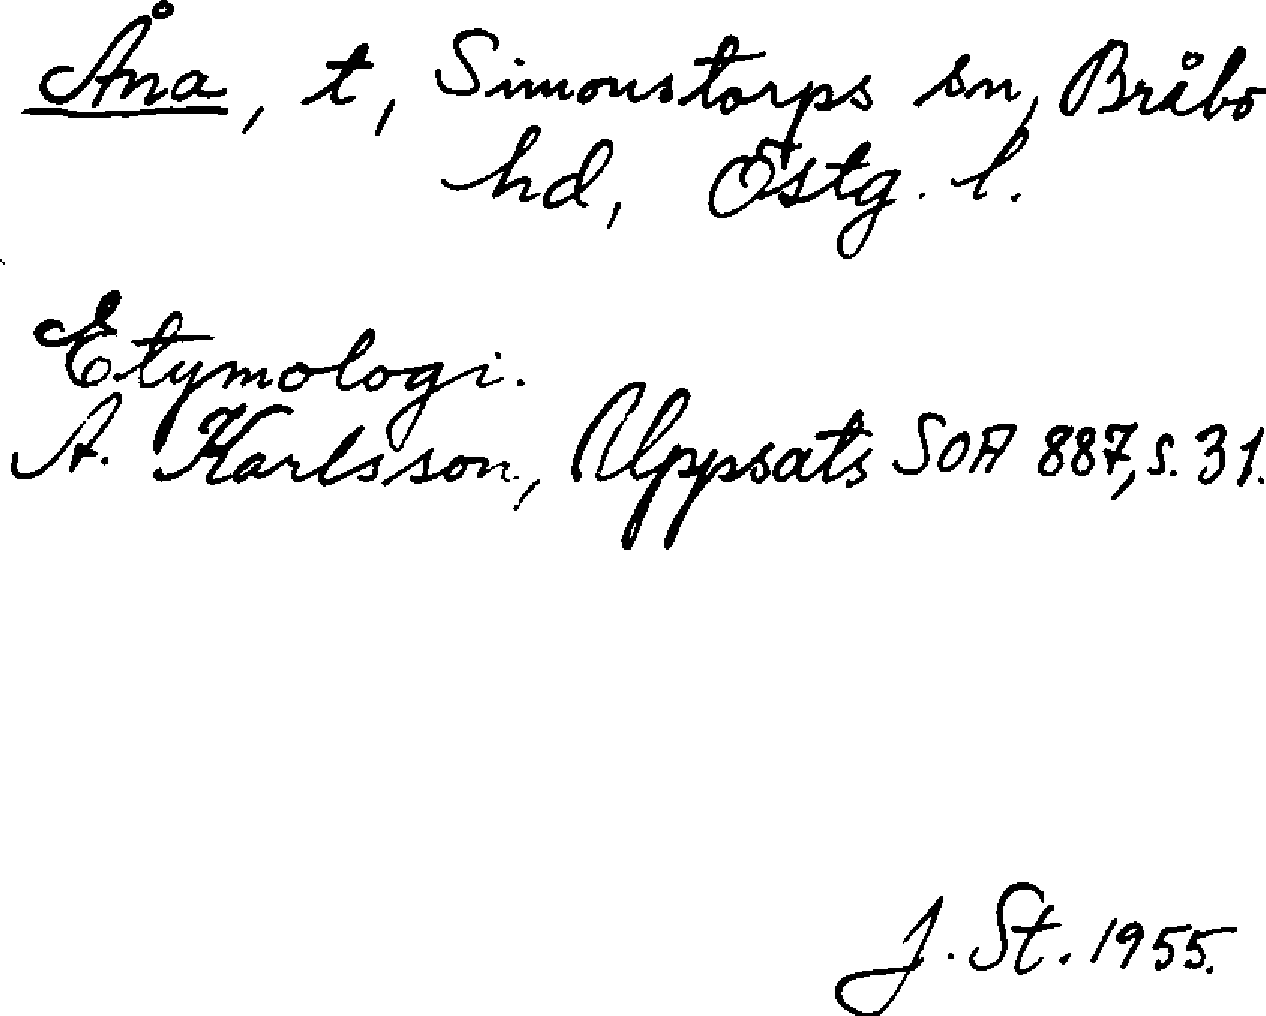 Åna, t, Simonstorps sn, Bråbo
hd, Östg. l.
Etymologi.
A. Karlsson, Uppsats SOA 887, s. 31.
J. St. 1955.